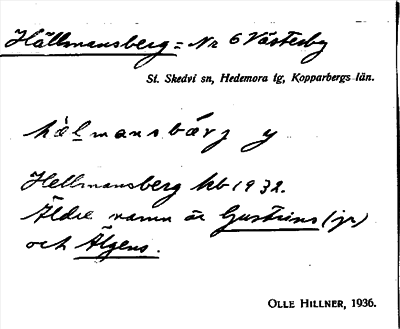 Hällmansberg = Nr 6 Västerby
St. Skedvi sn, Hedemora tg, Kopparbergs län.
hælmansbærj y
Hellmansberg hb 1932.
Äldre namn är Gustrins (jr)
och Älgens.
OLLE HILLNER, 1936.